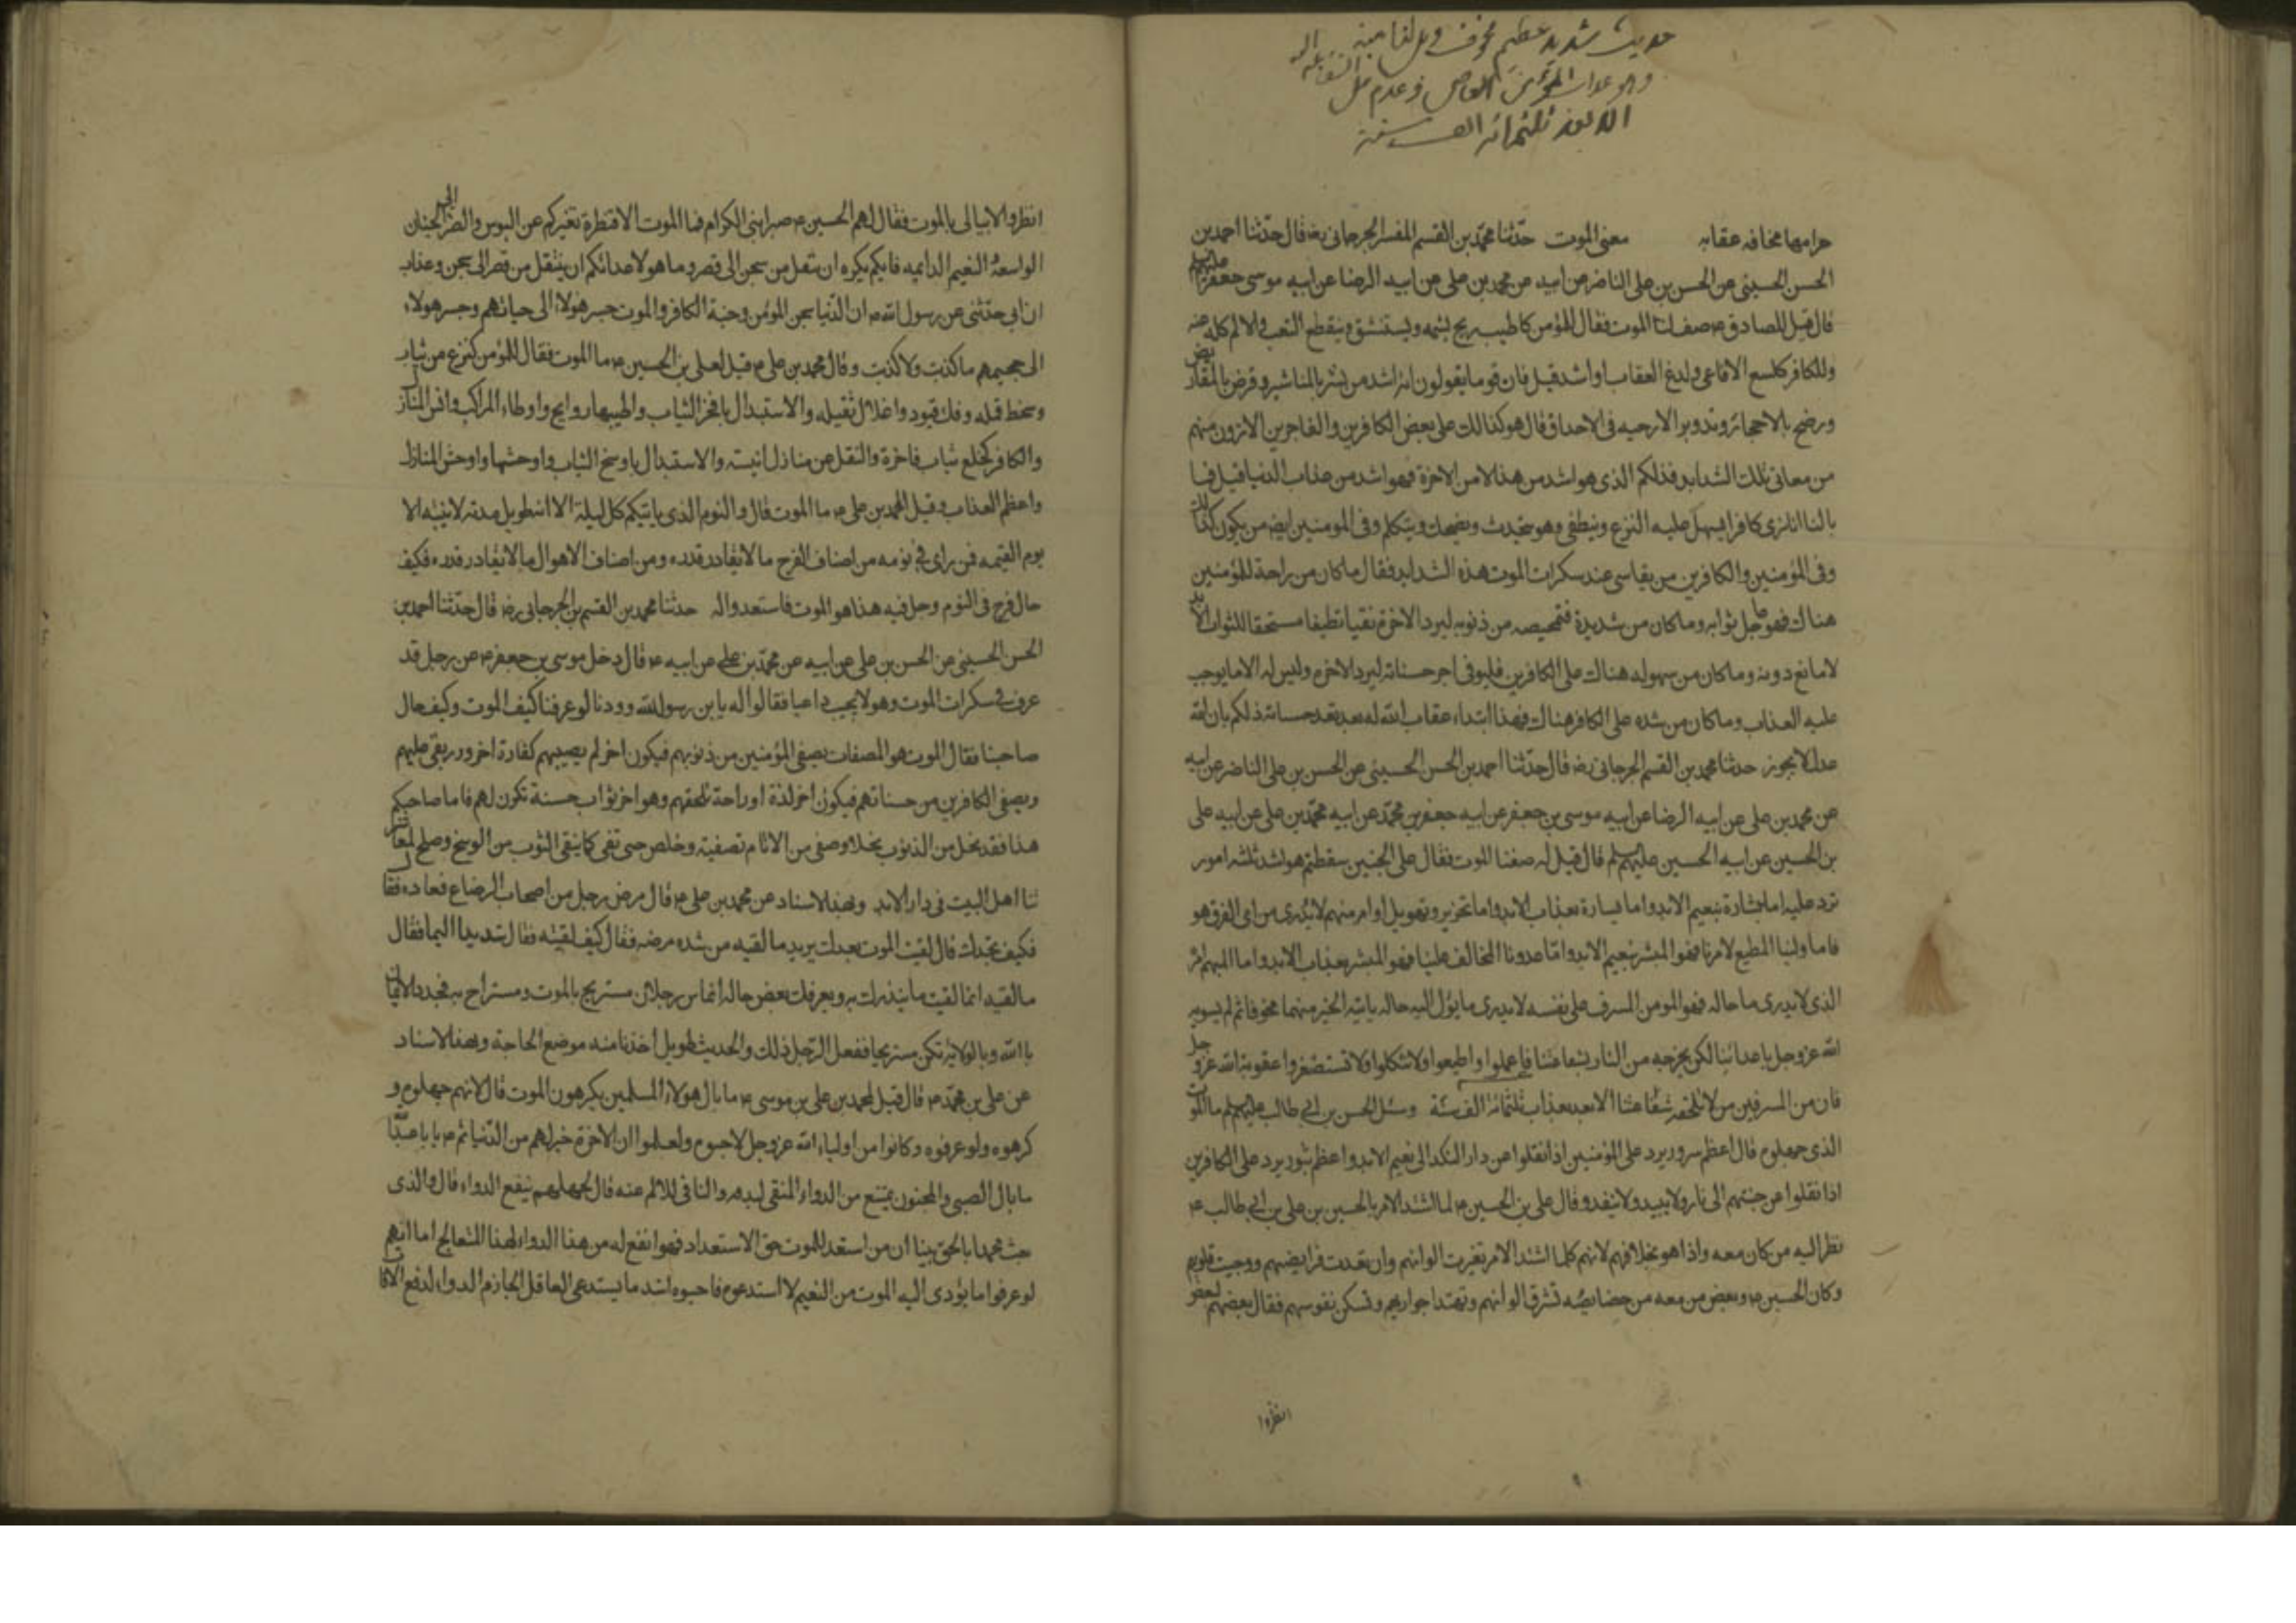 حديث شديد عظيم مخوف
وهو عذاب المؤمن العاصي وعدم
الا بعد ثلثمائة الف سنة
حرامها مخافه عقابه معنى الموت حدّثنا محمّد بن القسم المفسر الجرجانى رضه قال حدّثنا احمد بن
الحسن الحسينى عن الحسن بن على الناصر عن ابيه عن محمد بن على عن ابيه الرضا عن ابيه موسى جعفر عليهم
قال قيل للصادق ع صف لنا الموت فقال للمؤمن كاطيب ريح يشمه ويستنشق وينقطع التعب والالم كله عنه
وللكافر كلسع الافاعى ولدغ العقاب او اشد قيل فان قوما يقولون انه اشد من نشر بالمناشير وقرض بالمقاريض
ورضخ بالاحجار وتدوير الارحيه فى الاحداق قال هو كذالك على بعض الكافرين والفاجرين الا ترون منهم
من معانى تلك الشدايد فذلكم الذى هو اشد من هذا الا من الاخرة فهو اشد من عذاب الدنيا قيل فما
بالنا انا نرى كافرا يسهل عليه النزع وينطفى وهو يتحدث ويضحك ويتكلم وفى المومنين ايضه من يكون كذلك
وفى المؤمنين والكافرين من يقاسى عند سكرات الموت هذه الشدايد فقال ما كان من راحة للمؤمنين
هناك فهو عاجل ثوابه وما كان من شديدة فتمحيصه من ذنوبه ليرد الاخرة نقيا نظيفا مستحقا للثواب الابد
لا مانع دونه وما كان من سهوله هناك على الكافرين فليوفى اجر حسناته ليرد الاخره وليس له الا ما يوجب
عليه العذاب وما كان من شده على الكافر هناك فهذا ابتداء عقاب الله له بعد نفد حسانه ذلكم بان الله
عدل لا يجوز حدثنا محمد بن القسم الجرجانى رضه قال حدّثنا احمد بن الحسن الحسينى عن الحسن بن على الناصر عن ابيه
عن محمد بن على عن ابيه الرضا عن ابيه موسى بن جعفر عن ابيه جعفر بن محمّد عن ابيه محمّد بن على عن ابيه على
بن الحسين عن ابيه الحسين عليهم قال قيل له صف لنا الموت فقال على الخبير سقطتم هو اشد ثلثه امور
ترد عليه اما بشارة بنعيم الابد واما بسارة بعذاب الابد واما تحزير وتهويل وامر منهم لا يدرى من اى الفرق هو
فاما ولينا المطيع لامرنا فهو المبشر بنعيم الابد وامّا عدونا المخالف علينا فهو المبشر بعذاب الابد واما المبهم امره
الذى لا يدرى ما حاله فهو المومن المسرف على نفسه لا يدرى ما يؤل اليه حاله ياتيه الخبر مبهما مخوفا ثم لم يسويه
الله عز وجل باعدائنا لكن يخرجه من النار بشفاعتنا فاعملوا واطيعوا ولا تتكلوا ولا تستصغروا عقوبة الله عز وجل
فان من المسرفين من لا يلحقه شفاعتنا الا بعد بعذاب ثلثمائه الف سنة وسئل الحسن بن ابي طالب عليهم ما الموت
الذى جهلوه قال اعظم سرور يرد على المؤمنين اذا نقلوا من دار النكد الى نعيم الابد واعظم ثبور يرد على الكافرين
اذا نقلوا عن جنتهم الى نار ولا يبيد ولا ينفد وقال على بن الحسين ع لما اشتد الامر بالحسين بن على بن ابي طالب ع
نظر اليه من كان معه واذا هو بخلافهم لانهم كلما اشتد الامر تغيرت الوانهم وان تعدت فرايضهم ووجبت قلوبهم
وكان الحسين ع وبعض من معه من خصايصه تشرق الوانهم وتهتدا جوارحهم وتسكن نفوسهم فقال بعضهم لبعض
انظروا
انظروا لا يبالى بالموت فقال لهم الحسين ع صبرا بنى الكرام فما الموت الا قنطرة تعبركم عن البوس والضر الى الجنان
الواسعه النعيم الدايمه فايكم يكره ان ينتقل من سجن الى قصر وما هو لاعدائكم ان ينتقل من قصر الى سجن وعذاب
ان ابى حدّثنى عن رسول الله ص ان الدّنيا سجن المؤمن وجنة الكافر والموت جسر هولاء الى حياتهم وجسر هولاء
الى جحيمهم ما كذبت ولا كذبت وقال محمد بن على ع قيل لعلى بن الحسين ع ما الموت فقال للمؤمن كنزع من ثياب
وسخط قمله وفك قيود واغلال ثقيله والاستبدال بافخر الثياب واطيبها روايح واوطاء المراكب وانس المنازل
والكافر كخلع ثياب فاخرة والنقل عن منازل انيسته والاستبدال باوسخ الثياب واوحشها واوحش المنازل
واعظم العذاب وقيل لمحمد بن على ع ما الموت قال والنوم الذى ياتيكم كل ليلة الا انه طويل مدته لا ينبه الا
يوم القيمه فمن راى فى نومه من اصناف الفرح ما لا يقادر قدره ومن اصناف الاهوال ما لا يقادر قدره فكيف
حال فرح فى النوم وجل فيه هذا هو الموت فاستعدوا له حدثنا محمد بن القسم بن الجرجانى رضه قال حدّثنا احمد بن
الحسن الحسينى عن الحسن بن على عن ابيه عن محمّد بن على عن ابيه ع قال دخل موسى بن جعفر ع عن رجل قد
عرف فى سكرات الموت وهو لا يجيب داعيا فقالوا له يابن رسول الله وددنا لو عرفنا كيف الموت وكيف حال
صاحبنا فقال الموت هو المصفات يصفى المؤمنين من ذنوبهم فيكون اخر لم يصيبهم كفارة اخر وزر بقى عليهم
ويصفى الكافرين من حسناتهم فيكون اخر لذة او راحة تلحقهم وهو اخر ثواب حسنة تكون لهم فاما صاحبكم
هذا فقد نخل من الذنوب نخلا وصفى من الاثام تصفية وخلص حتى تقى كما ينقى الثوب من الوسخ وصلح لمعاشر
تنا اهل البيت فى دار الابد وبهذا الاسناد عن محمد بن على ع قال مرض رجل من اصحاب الرضا ع فعاده فقال
فكيف تجدك قال لقيت الموت بعدك يريد ما لقيه من شده مرضه فقال كيف لقيته فقال شديدا اليما فقال
ما لقيه انما لقيت ما ينذرك به ويعرفك بعض حاله انما الناس رجلان مستريح بالموت ومستراح به فجدد الايمان
بالله وبالولاية تكن مستريحا ففعل الرجل ذلك والحديث طويل اخذنا منه موضع الحاجة وبهذا الاسناد
عن على بن محمّد ع قال قيل لمحمد بن على بن موسى ع ما بال هولاء المسلمين يكرهون الموت قال لانهم جهلوه و
كرهوه ولو عرفوه وكانوا من اولياء الله عز وجل لاحبوه ولعلموا ان الاخرة خير لهم من الدّنيا ثم ع يا با عبد الله
ما بال الصبى والمجنون يمتنع من الدواء المنقى لبدنه والنافى للالم عنه قال لجهلهم بنفع الدواء قال والذى
بعث محمدا بالحق نبينا ان من استعد للموت حق الاستعداد فهو انفع له من هذا الدواء لهذا المتعالج اما انهم
لو عرفوا ما يؤدى اليه الموت من النعيم لاستدعوه فاحبوه اشد ما يستدعى العاقل الجازم الدواء لدفع الافات